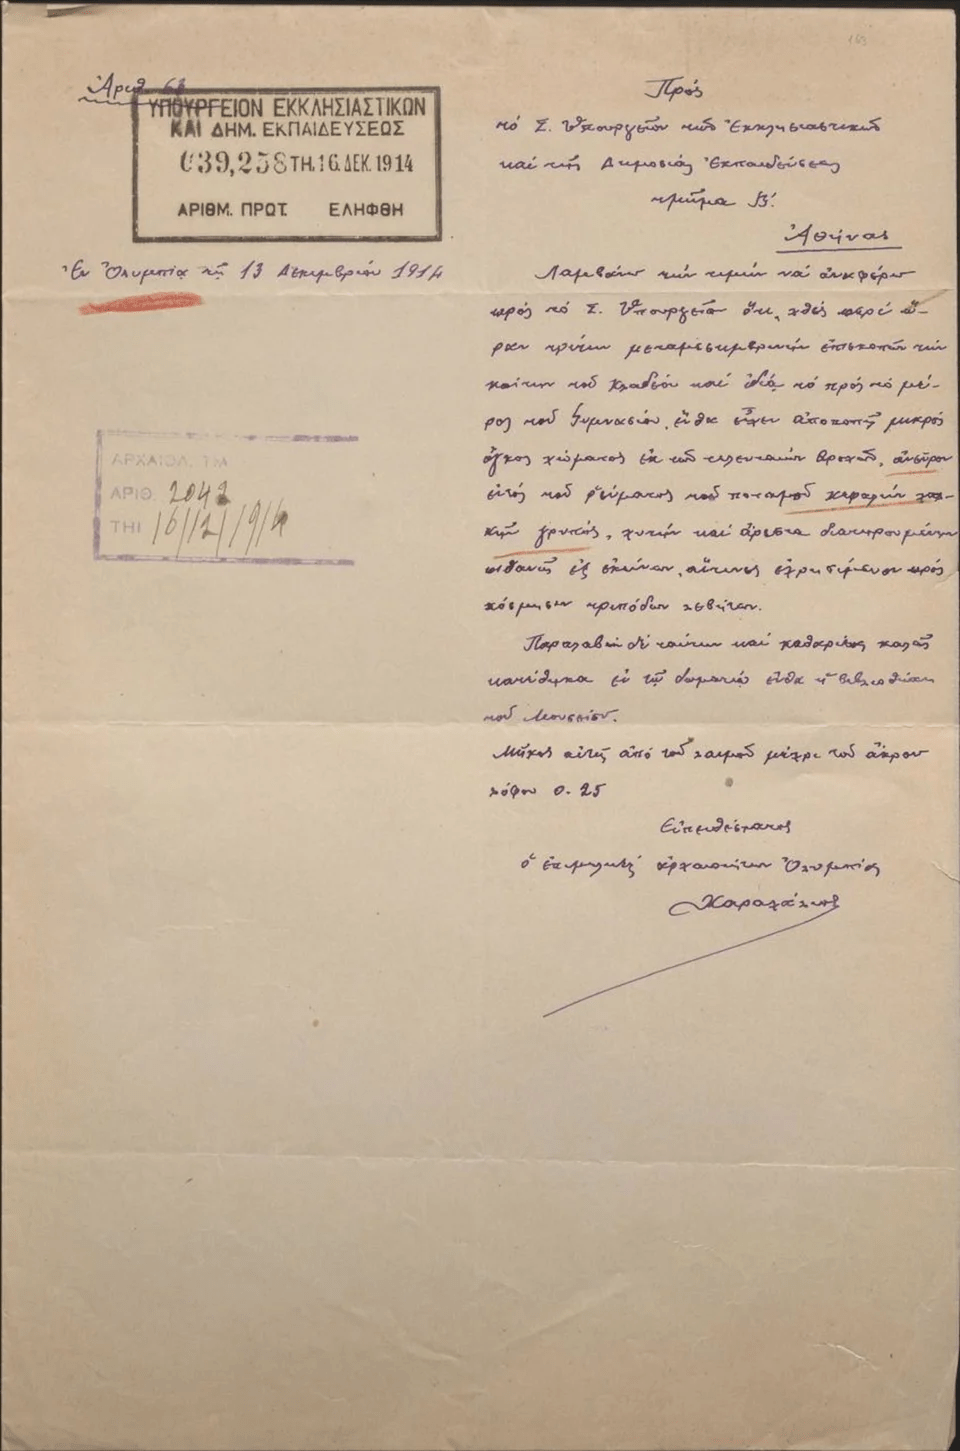 163
Ἀριθ. 68
ΥΠΟΥΡΓΕΙΟΝ ΕΚΚΛΗΣΙΑΣΤΙΚΩΝ
ΚΑΙ ΔΗΜ. ΕΚΠΑΙΔΕΥΣΕΩΣ
039,258 ΤΗ. 16. ΔΕΚ. 1914
ΑΡΙΘΜ. ΠΡΩΤ. ΕΛΗΦΘΗ
Ἐν Ὀλυμπίᾳ τῇ 13 Δεκεμβρίου 1914
ΑΡΧΑΙΟΛ. ΤΜ
ΑΡΙΘ. 2042
ΤΗΙ 16/12/1914
Πρός
τό Σ. Ὑπουργεῖον τῶν Ἐκκλησιαστικῶν
καί τῆς Δημοσίας Ἐκπαιδεύσεως
τμῆμα Β΄.
Ἀθήνας
Λαμβάνω τήν τιμήν νά ἀναφέρω
πρός τό Σ. Ὑπουργεῖον ὅτι, χθές περί ὥ-
ραν τρίτην μεταμεσημβρινήν ἐπισκοπῶν τήν
κοίτην τοῦ Κλαδέου καί ἰδίᾳ τό πρός τό μέ-
ρος τοῦ Γυμνασίου, ἔνθα εἶχεν ἀποκοπῆ μικρός
ὄγκος χώματος ἐκ τῶν τελευταίων βροχῶν, ἀνεῦρον
ἐντός τοῦ ῥεύματος τοῦ ποταμοῦ κεφαλήν χαλ-
κῆν γρυπός, χυτήν καί ἄριστα διατηρουμένην
πιθανῶς ἐξ ἐκείνων, αἵτινες ἐχρησίμευον πρός
κόσμησιν τριπόδων λεβήτων.
Παραλαβών δέ ταύτην καί καθαρίσας καλῶς
κατέθηκα ἐν τῷ δωματίῳ ἔνθα ἡ βιβλιοθήκη
τοῦ Μουσείου.
Μῆκος αὐτῆς ἀπό τοῦ λαιμοῦ μέχρι τοῦ ἄκρου
λόφου 0.25
Εὐπειθέστατος
ὁ ἐπιμελητής ἀρχαιοτήτων Ὀλυμπίας